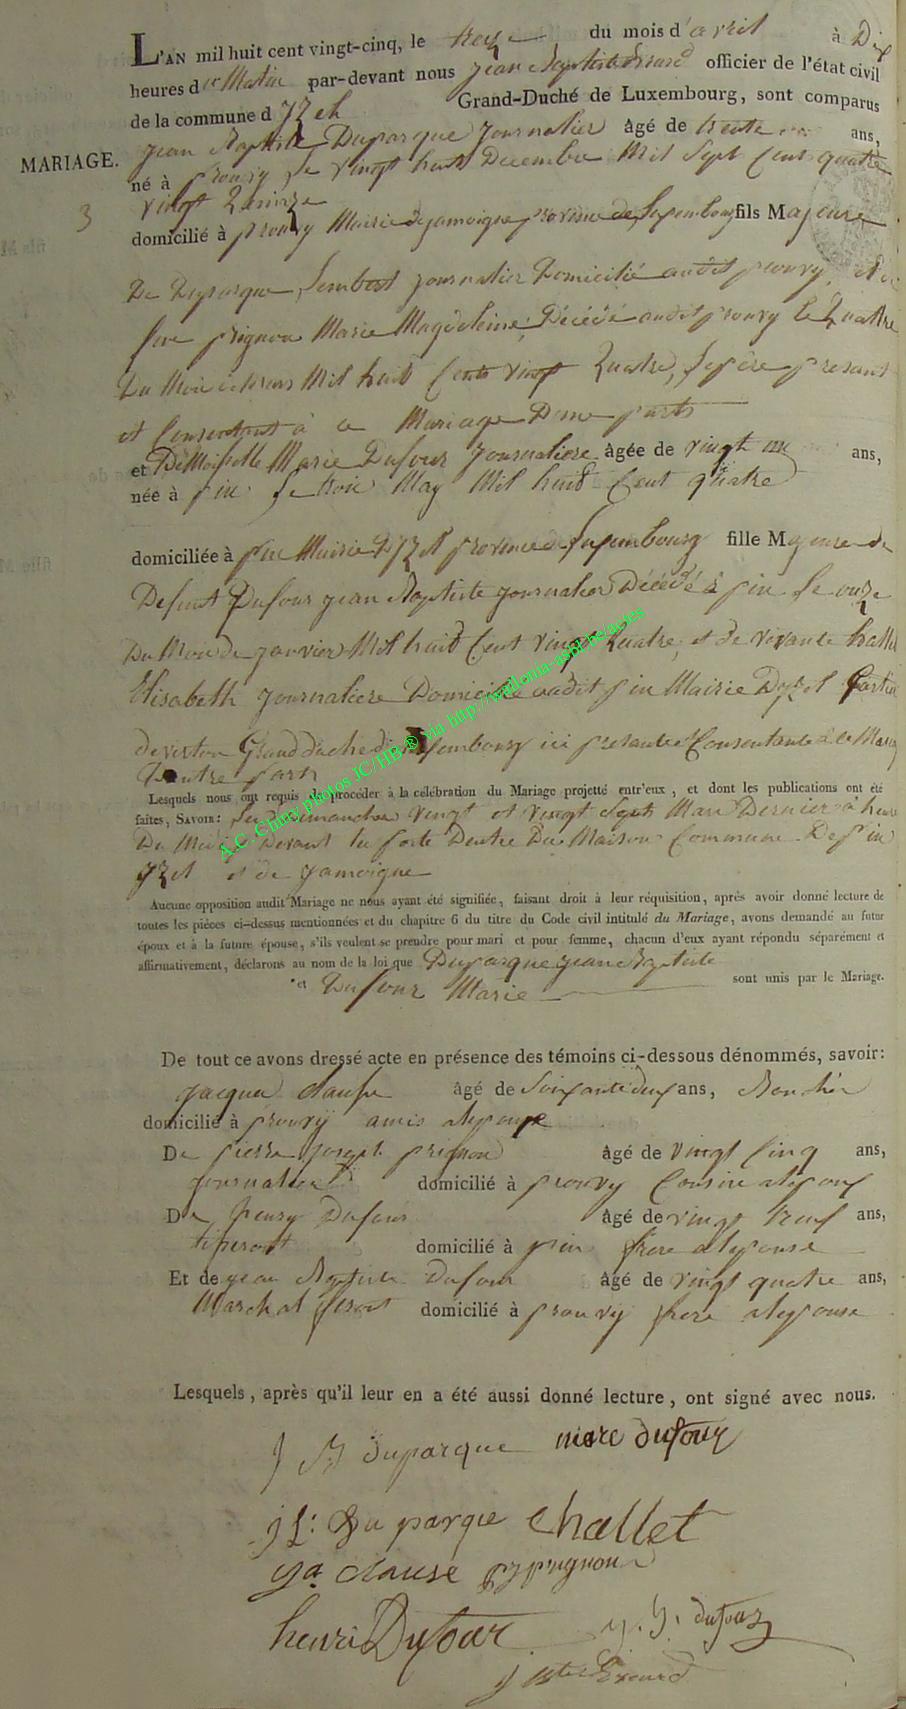 L'AN mil huit cent vingt-cinq, le treize du mois d'avril à Dix
heures du Matin par-devant nous Jean Baptiste officier de l'état civil
de la commune d'Izel Grand-Duché de Luxembourg, sont comparus
MARIAGE. Jean Baptiste Duparque Journalier âgé de trente ans,
né à prouvy le vingt huit Decembre Mil Sept Cent quatre
3 vingt
domicilié à prouvy Mairie de jamoigne province de Luxembourg fils Majeure
De Duparque Lambert journalier Domicilié audit prouvy, et de
feue prignon Marie Magdeleine, Décédé audit prouvy le Quatre
Du Mois de Mars Mil huit Cents vingt Quatre, le père present
et Consentant à ce Mariage Dune parts
et DeMoiselle Marie Dufour Journaliere âgée de vingt un ans,
née à pin le trois May Mil huit Cent quatre
domiciliée à pin Mairie D'izel province de Luxembourg fille Majeure de
Defunt Dufour jean Baptiste journalier Décédé à pin le onze
Du Mois de janvier Mil huit Cent vingt Quatre, et de vivante
Elisabeth Journaliere Domicilié audit pin Mairie Dizel
de virton Grand duché de Luxembourg ici presante et Consentante à le
Dautre parts
Lesquels nous ont requis de procéder à la célébration du Mariage projetté entr'eux, et dont les publications ont été
faites, SAVOIR: les dimanches vingt et vingt Sept Mars Dernier à heure
De Midi Devant la porte Dentre De Maison Commune De pin
Izel et de jamoigne
Aucune opposition audit Mariage ne nous ayant été signifiée, faisant droit à leur réquisition, après avoir donné lecture de
toutes les pièces ci-dessus mentionnées et du chapitre 6 du titre du Code civil intitulé du Mariage, avons demandé au futur
époux et à la future épouse, s'ils veulent se prendre pour mari et pour femme, chacun d'eux ayant répondu séparément et
affirmativement, déclarons au nom de la loi que Duparque jean Baptiste
et Dufour Marie sont unis par le Mariage.
De tout ce avons dressé acte en présence des témoins ci-dessous dénommés, savoir:
Jacque clause âgé de Soixante deux ans,
domicilié à prouvy amis
De pierre joseph prignon âgé de vingt Cinq ans,
journalier domicilié à prouvy Cousin
De henry Dufour âgé de vingt neuf ans,
tisserant domicilié à pin frere
Et de jean Baptiste Dufour âgé de vingt quatre ans,
Marchal ferant domicilié à prouvy frere
Lesquels, après qu'il leur en a été aussi donné lecture, ont signé avec nous.
J B duparque marc dufour
j L: Du parque Challet
ja clause pjprignon
henri Dufour j. B. dufour
j Bte
A.C. Chiny photos JC/HB ® via http://wallonia-asbl.be/actes